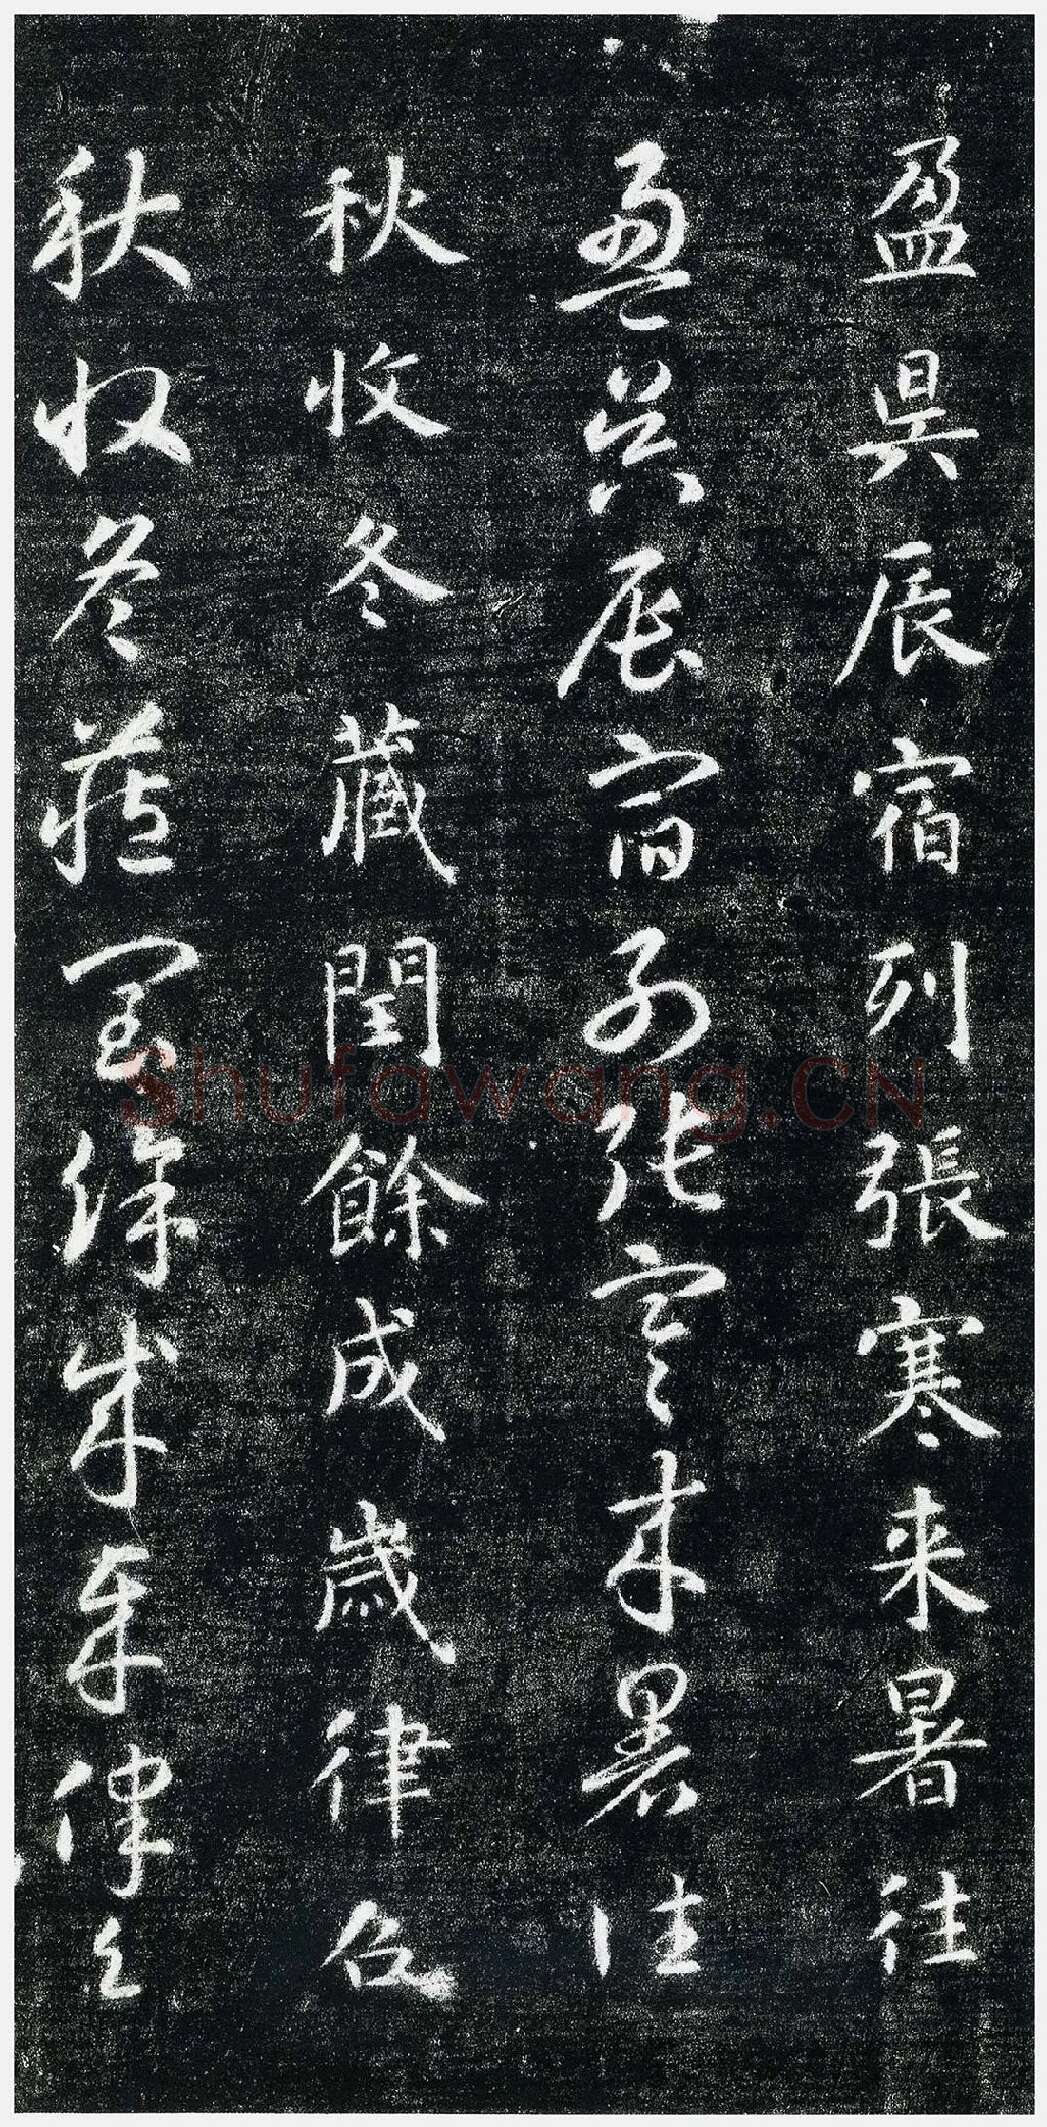 盈昃辰宿列張寒来暑往
盈昃辰宿列張寒来暑往
秋收冬藏閏餘成歲律召
秋收冬藏閏餘成歲律召
Shufawang.CN